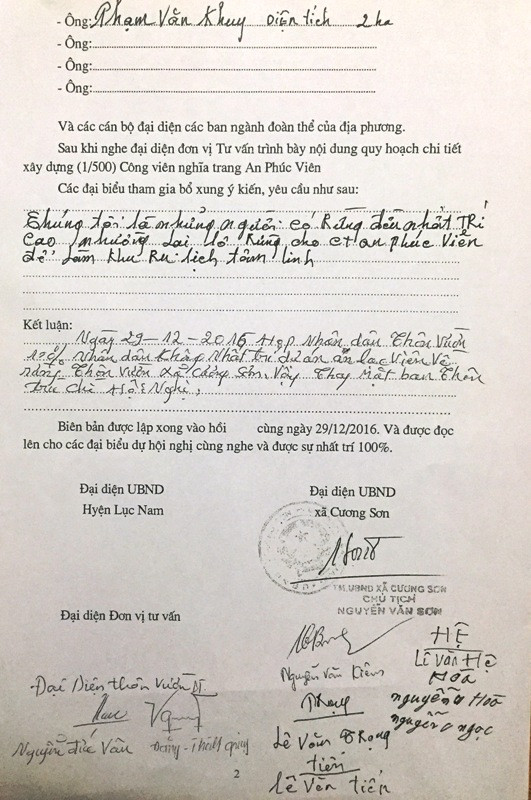 - Ông: Phạm Văn Khuy Diện tích 2ha
- Ông:
- Ông:
- Ông:
Và các cán bộ đại diện các ban ngành đoàn thể của địa phương.
Sau khi nghe đại diện đơn vị Tư vấn trình bày nội dung quy hoạch chi tiết
xây dựng (1/500) Công viên nghĩa trang An Phúc Viên
Các đại biểu tham gia bổ xung ý kiến, yêu cầu như sau:
Chúng tôi là những người có Rừng đều nhất TRí
Cao nhường lại Rừng cho cty an phúc Viên
để làm khu Ru lịch tâm linh
Kết luận:
Ngày 29-12-2016 Họp Nhân dân Thôn Vườn
100% Nhân dân Không Nhất trí dự án an lạc Viên Về
rừng Thôn Vườn xã Cương Sơn, Vậy Thay mặt ban Thôn
Biên bản được lập xong vào hồi cùng ngày 29/12/2016. Và được đọc
lên cho các đại biểu dự hội nghị cùng nghe và được sự nhất trí 100%.
Đại diện UBND
Hyện Lục Nam
Đại diện UBND
xã Cương Sơn
TM.UBND XÃ CƯƠNG SƠN
CHỦ TỊCH
NGUYỄN VĂN SƠN
Đại diện Đơn vị tư vấn
HỆ
Lê Văn Hệ
Nguyễn Văn Kiêm
Hoà
nguyễn Hoà
nguyễn ngọc
Trọng
Lê Văn Trọng
Tiến
Lê Văn Tiến
-Đại Diện thôn Vườn
Nguyễn Đức Vân
2